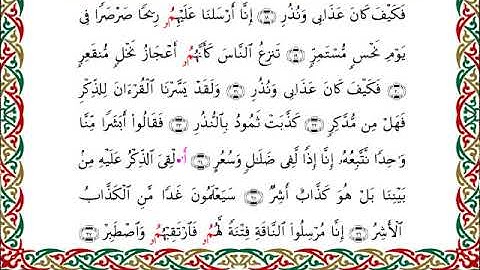 فَكَيْفَ كَانَ عَذَابِى وَنُذُرِ ۝ إِنَّا أَرْسَلْنَا عَلَيْهِمُۥ رِيحًا صَرْصَرًا فِى
يَوْمِ نَحْسٍ مُّسْتَمِرٍّ ۝ تَنزِعُ النَّاسَ كَأَنَّهُمُۥ أَعْجَازُ نَخْلٍ مُّنقَعِرٍ
۝ فَكَيْفَ كَانَ عَذَابِى وَنُذُرِ ۝ وَلَقَدْ يَسَّرْنَا الْقُرْءَانَ لِلذِّكْرِ
فَهَلْ مِن مُّدَّكِرٍ ۝ كَذَّبَتْ ثَمُودُ بِالنُّذُرِ ۝ فَقَالُوا أَبَشَرًا مِّنَّا
وَاحِدًا نَّتَّبِعُهُۥ إِنَّا إِذًا لَّفِى ضَلَالٍ وَسُعُرٍ ۝ أَ•لْقِىَ الذِّكْرُ عَلَيْهِ مِنۢ
بَيْنِنَا بَلْ هُوَ كَذَّابٌ أَشِرٌ ۝ سَيَعْلَمُونَ غَدًا مَّنِ الْكَذَّابُ
الْأَشِرُ ۝ إِنَّا مُرْسِلُوا النَّاقَةِ فِتْنَةً لَّهُمُۥ فَارْتَقِبْهُمُۥ وَاصْطَبِرْ ۝